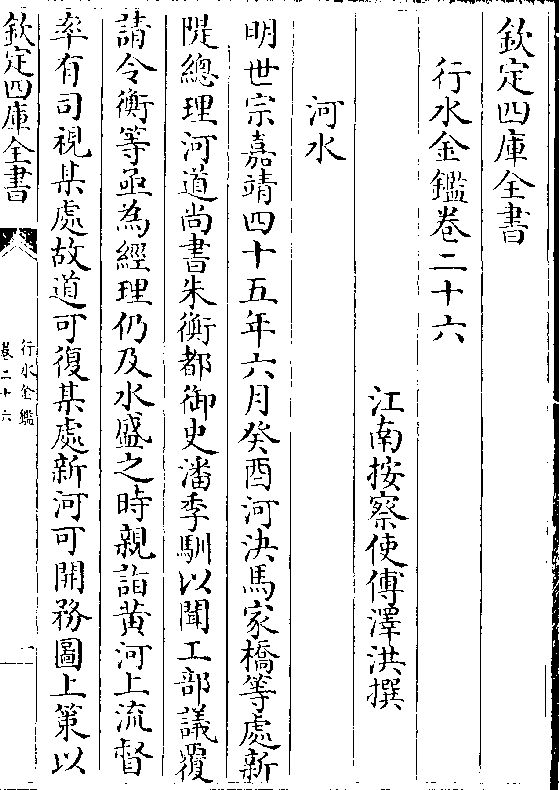 欽定四庫全書
行水金鑑卷二十六
江南按察使傅澤洪撰
河水
明世宗嘉靖四十五年六月癸酉河決馬家橋等處新
隄總理河道尚書朱衡都御史潘季馴以聞工部議覆
請令衡等亟為經理仍及水盛之時親詣黃河上流督
率有司視某處故道可復某處新河可開務圖上策以
欽定四庫全書
行水金鑑
卷二十六
一